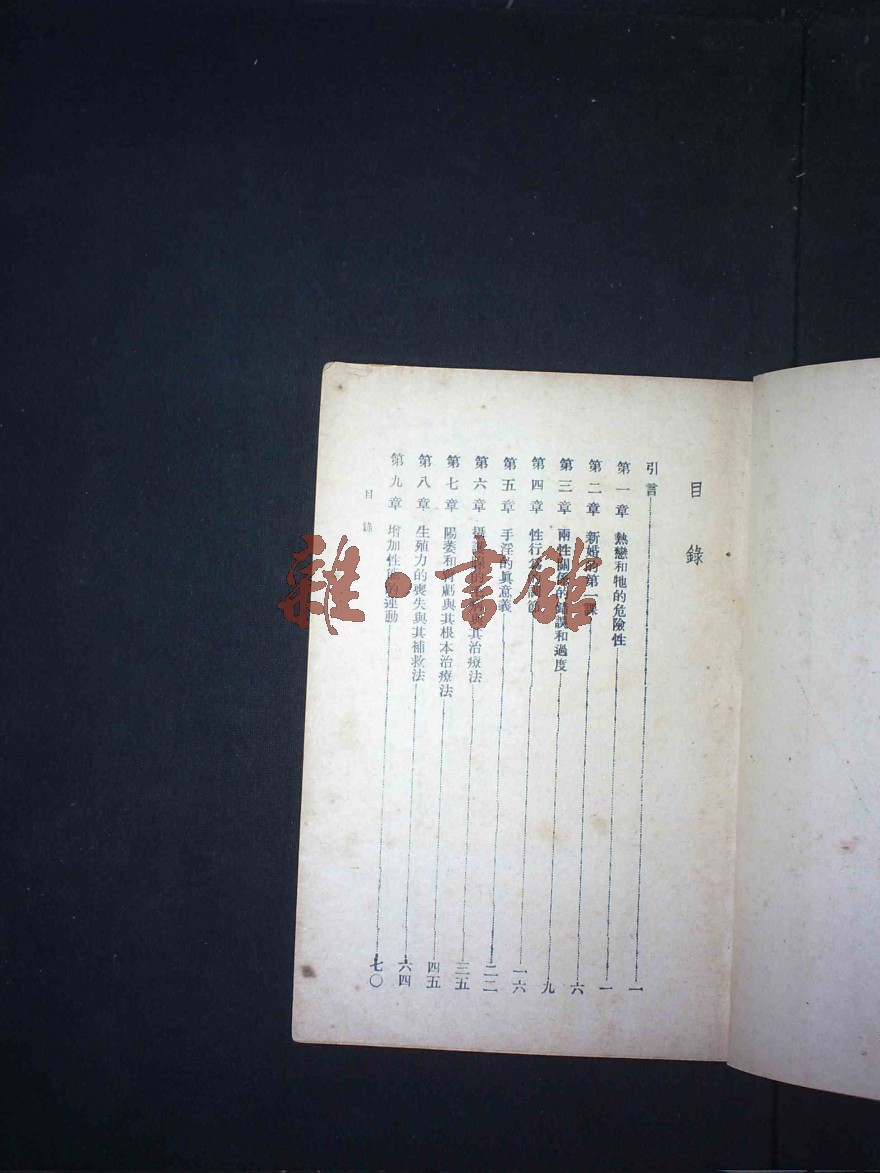 目錄
引言 一
第一章 熱戀和牠的危險性 一
第二章 新婚的第一課 六
第三章 兩性關係的錯誤和過度 九
第四章 性行為 一六
第五章 手淫的眞意義 二二
第六章 攝護腺 其治療法 三五
第七章 陽萎和腎虧與其根本治療法 四五
第八章 生殖力的喪失與其補救法 六四
第九章 增加性 運動 七〇
目錄
雜·書館